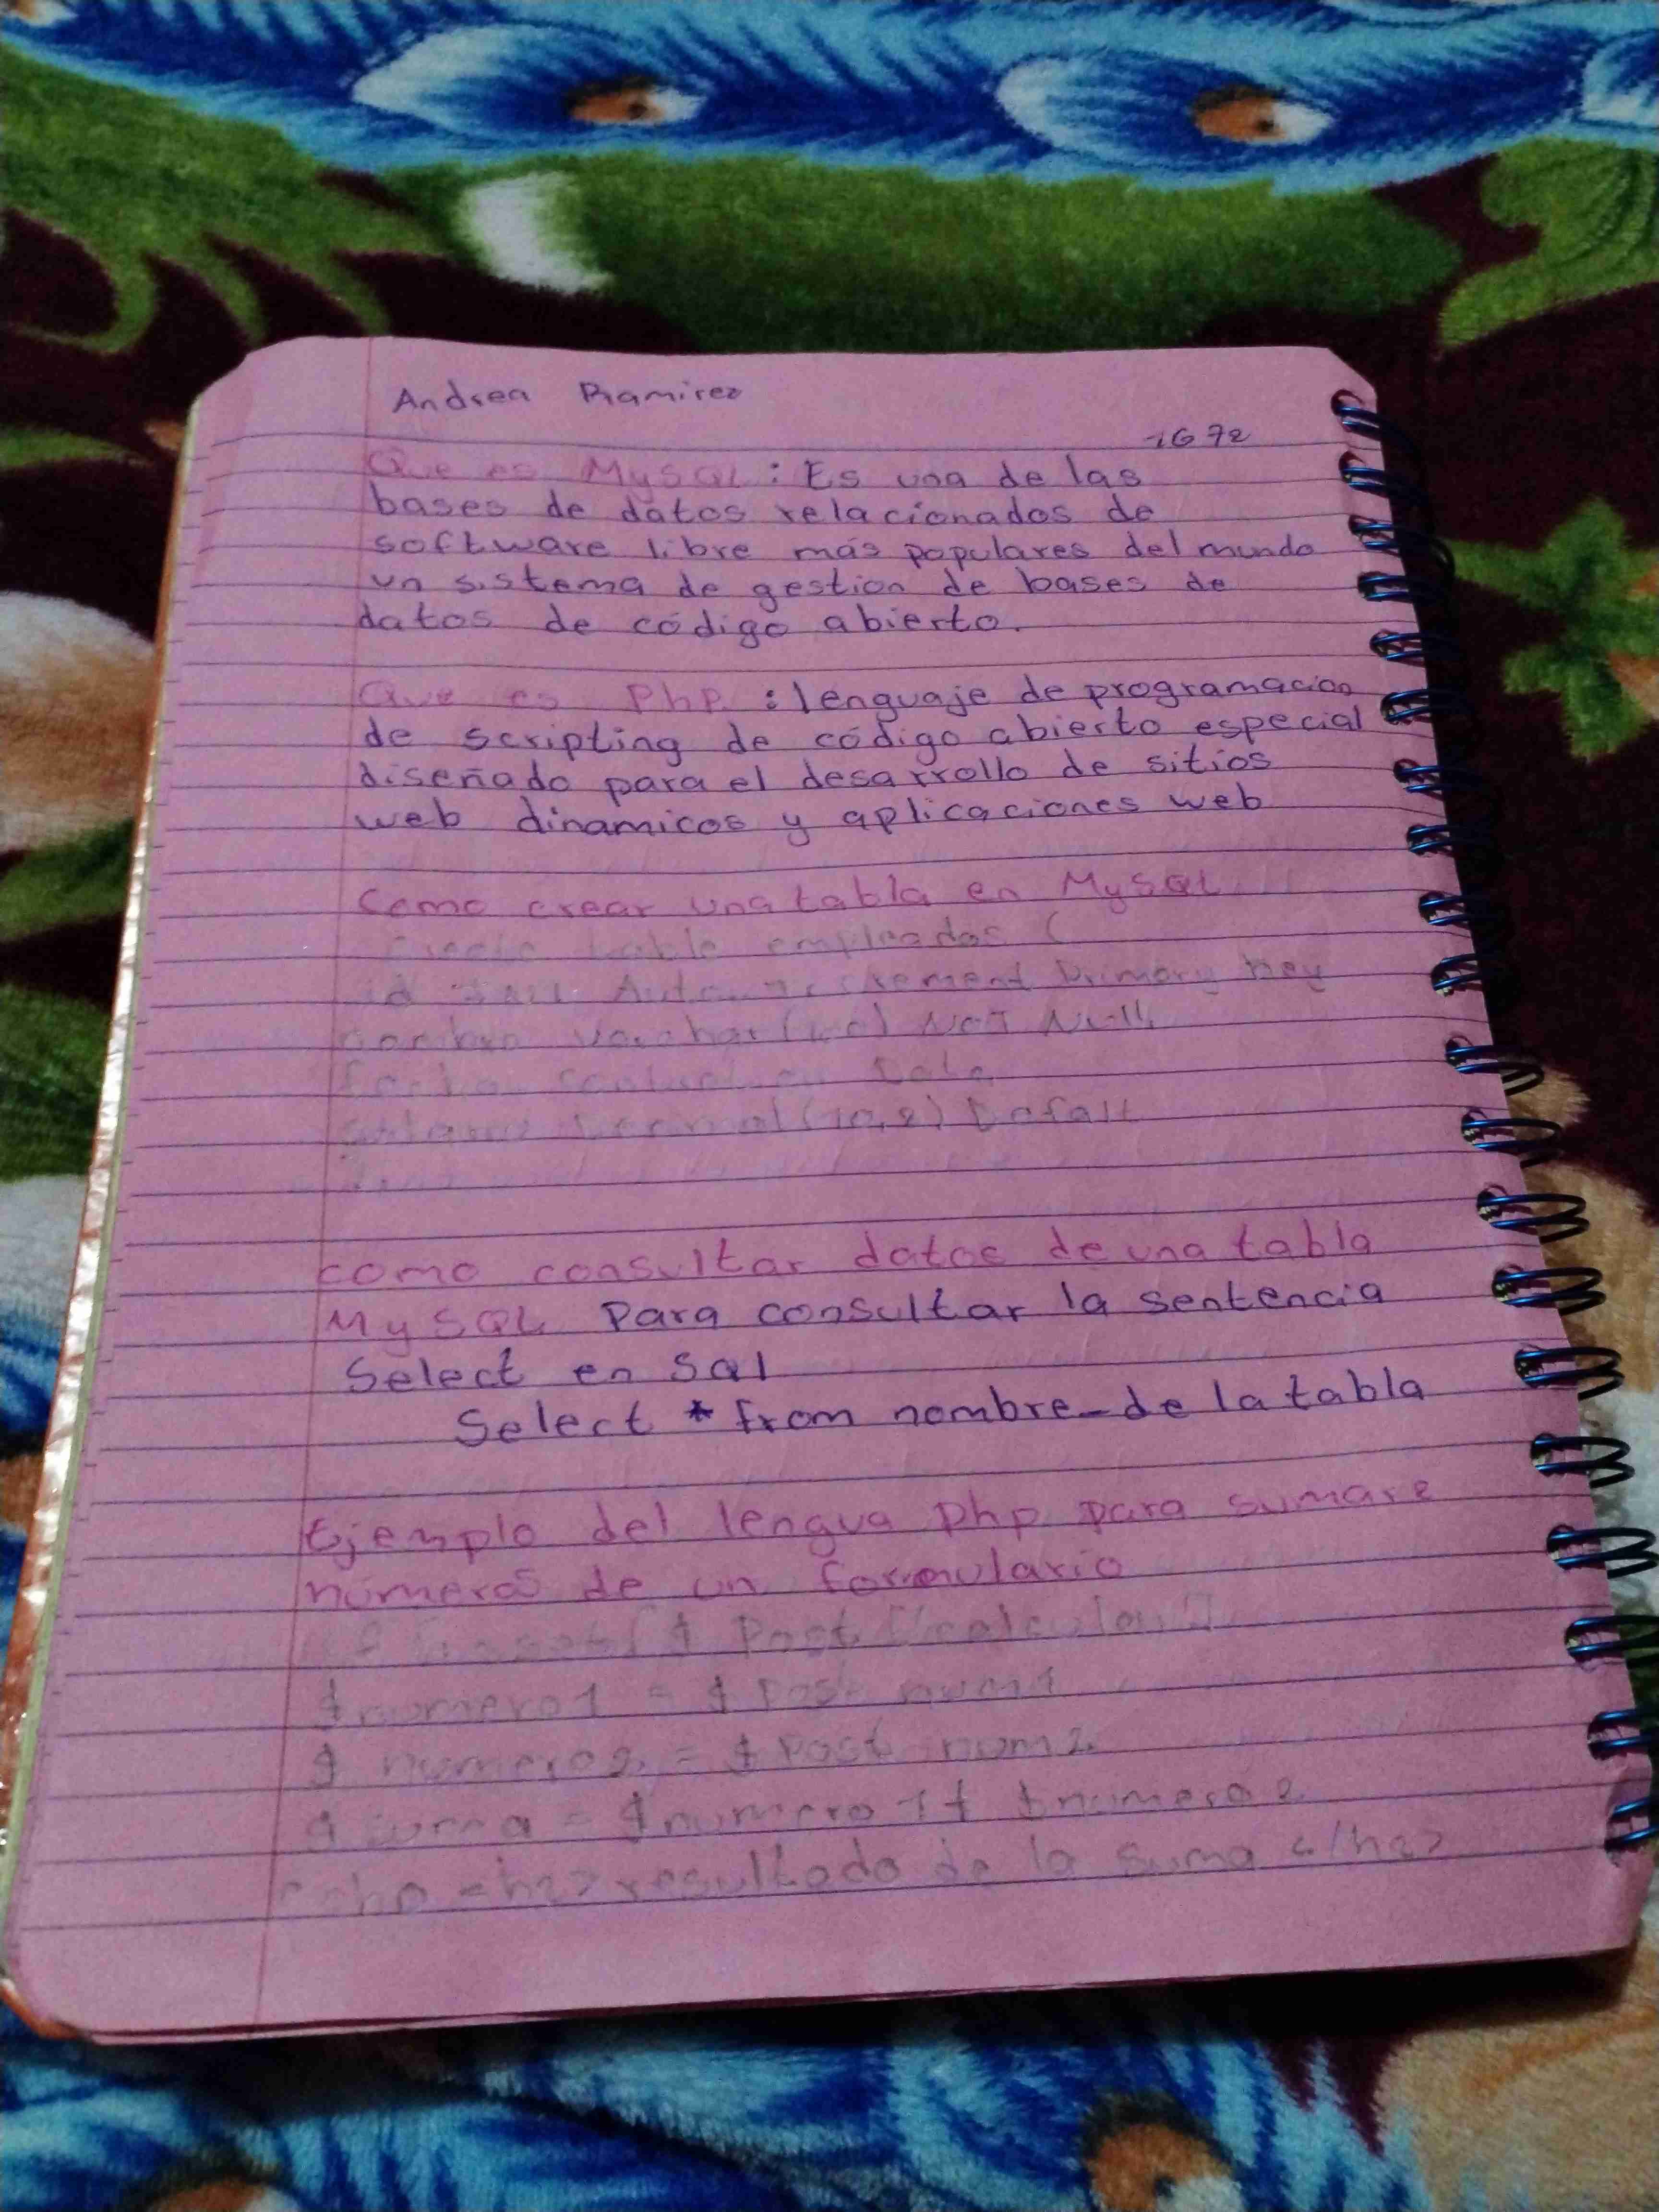 Andrea Ramirez
1G72
Que es MySQL : Es una de las
bases de datos relacionados de
software libre más populares del mundo
un sistema de gestion de bases de
datos de código abierto.
Que es Php : lenguaje de programacion
de scripting de código abierto especial
diseñado para el desarrollo de sitios
web dinamicos y aplicaciones web
Como crear una tabla en MySQL
table empleados (
id Primary key
nombre varchar NOT Null
Date
(10,2) Defalt
como consultar datos de una tabla
MySQL Para consultar la sentencia
Select en Sql
Select * from nombre_de la tabla
Ejemplo del lengua php para sumar 2
números de un formulario
$ Post
$numero1 = $ Post num1
$ numero2 = $ Post num2
$ suma = $numero 1 + $numero 2
resultado de la suma </h2>